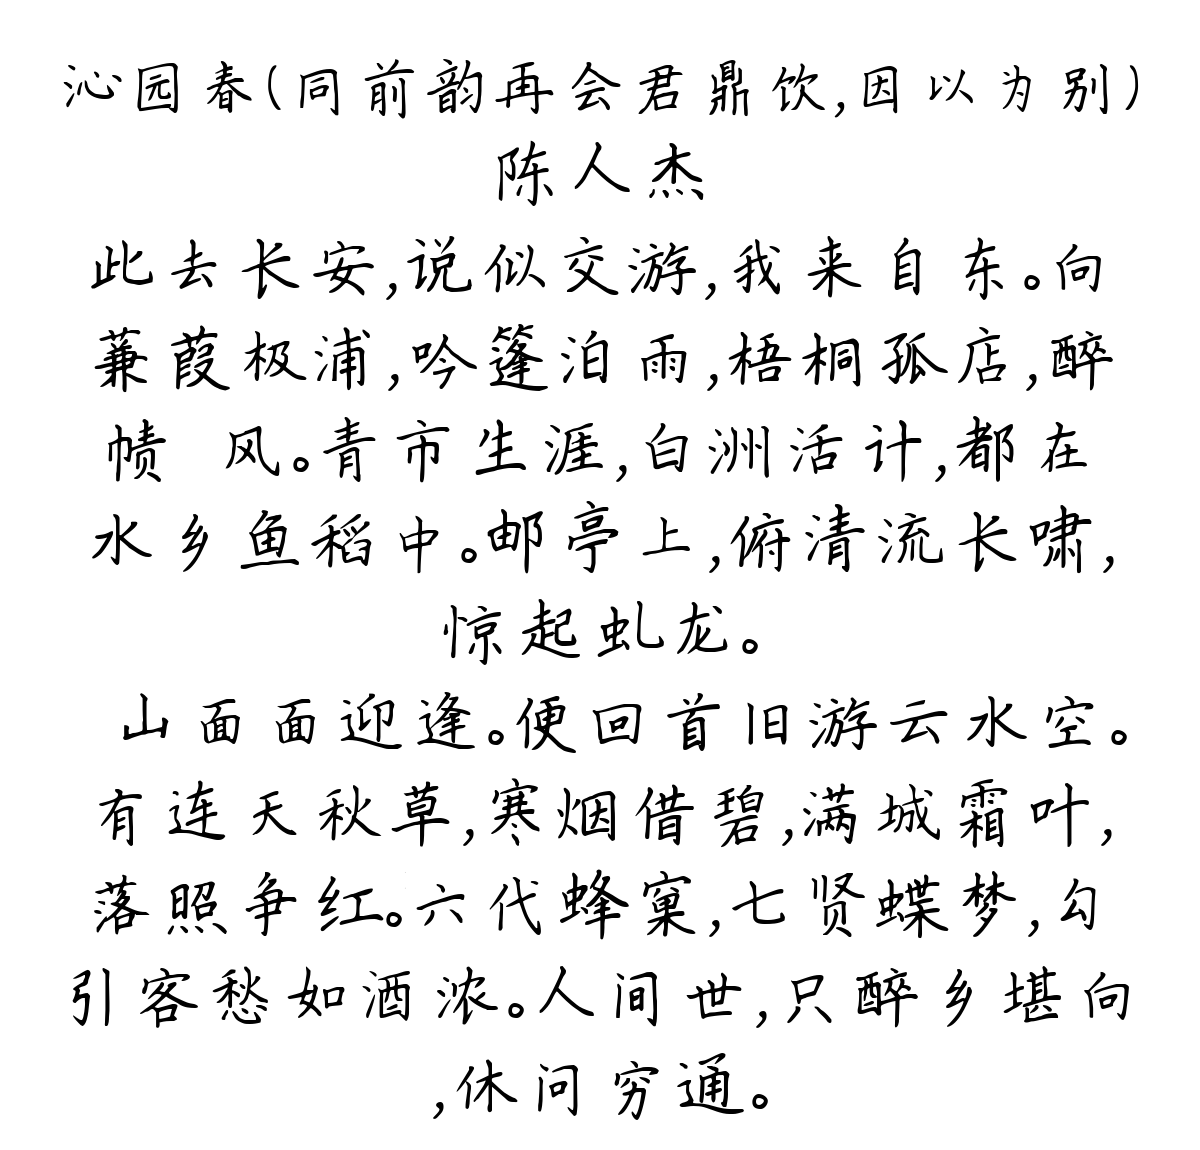 沁园春(同前韵再会君鼎饮,因以为别)
陈人杰
此去长安,说似交游,我来自东。向
蒹葭极浦,吟篷泊雨,梧桐孤店,醉
帻 风。青市生涯,白洲活计,都在
水乡鱼稻中。邮亭上,俯清流长啸,
惊起虬龙。
山面面迎逢。便回首旧游云水空。
有连天秋草,寒烟借碧,满城霜叶,
落照争红。六代蜂窠,七贤蝶梦,勾
引客愁如酒浓。人间世,只醉乡堪向
,休问穷通。